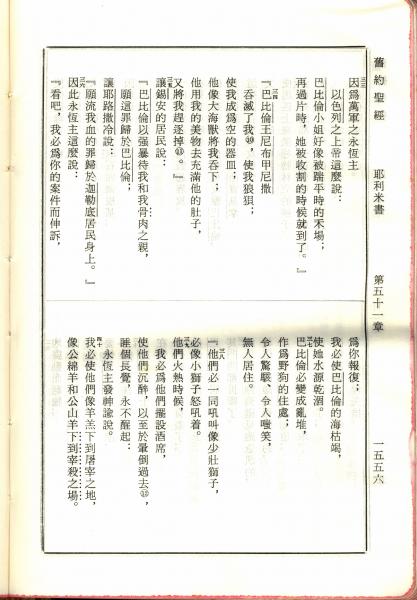 舊約聖經　耶利米書　第五十一章　一五五六
三三因爲萬軍之永恆主
以色列之上帝這麼說：
巴比倫小姐好像被踹平時的禾場；
再過片時，她被收割的時候就到了。』
三四『巴比倫王尼布甲尼撒
吞滅了我㊵，使我狼狽；
使我成爲空的器皿；
他像大海獸將我吞下；
他用我的美物去充滿他的肚子，
又將我趕逐掉㊶。』
三五讓錫安的居民說：
『巴比倫以强暴待我和我骨肉之親，
願這罪歸於巴比倫；
讓耶路撒冷說：
『願流我血的罪歸於迦勒底居民身上。』
三六因此永恆主這麼說：
『看吧，我必爲你的案件而伸訴，
爲你報復；
我必使巴比倫的海枯竭，
使她水源乾涸。
三七巴比倫必變成亂堆，
作爲野狗的住處；
令人驚駭、令人嗤笑，
無人居住。
三八『他們必一同吼叫像少壯獅子，
必像小獅子怒吼着。
三九他們火熱時候，
我必爲他們擺設酒席，
使他們沉醉，以至於暈倒過去㊷，
睡個長覺，永不醒起：
永恆主發神諭說。
四十我必使他們像羊羔下到屠宰之地，
像公綿羊和公山羊下到宰殺之場。